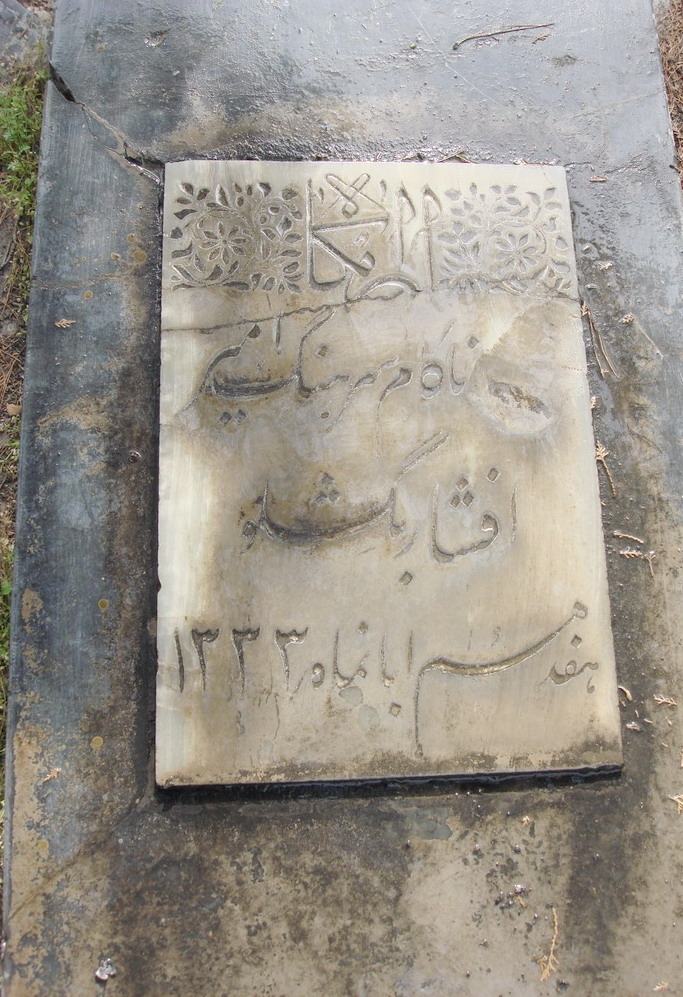 آرامگاه
ناکام سرهنگ امیر
افشار بکشلو
هفدهم ابانماه ۱۳۳۳